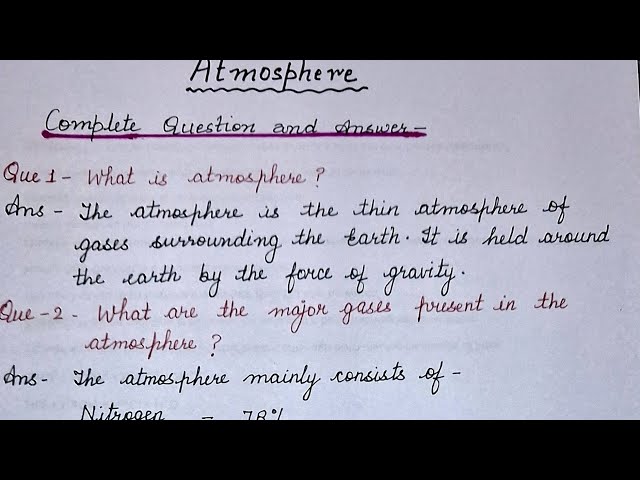 Atmosphere
Complete Question and Answer-
Que 1 - What is atmosphere?
Ans - The atmosphere is the thin atmosphere of
gases surrounding the Earth. It is held around
the earth by the force of gravity.
Que - 2 - What are the major gases present in the
atmosphere?
Ans- The atmosphere mainly consists of -
Nitrogen - 78%